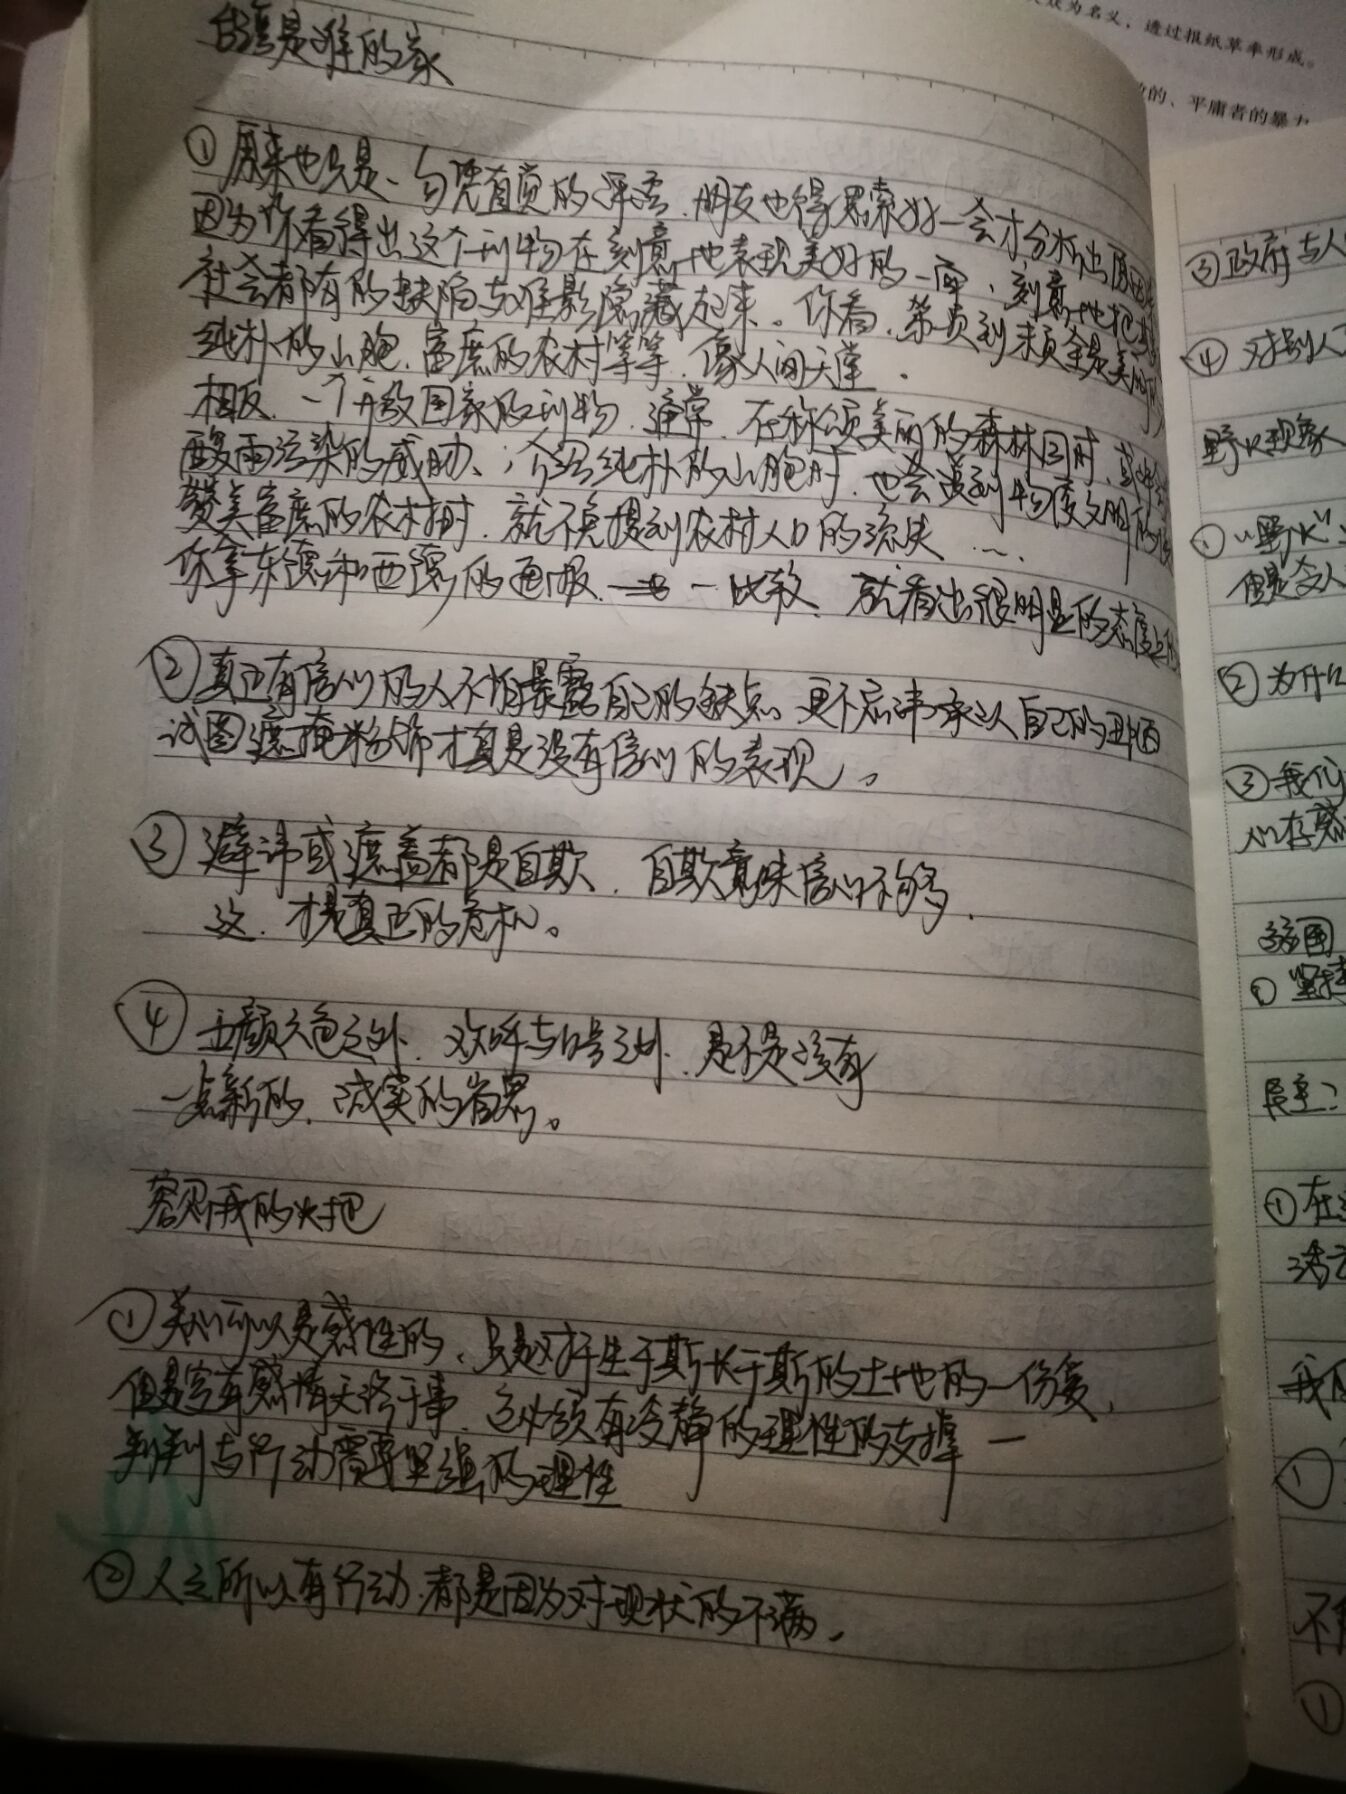 众为名义，透过报纸草率形成。
的、平庸者的暴力
是谁的家
① 原来也只是一句凭直觉的评语，朋友也得思索好一会才分析出原因
因为你看得出这个刊物在刻意地表现美好的一面，刻意地把
社会都有的缺陷与难影隐藏起来。你看，第一页到末页全是美丽的
纯朴的山胞，富庶的农村等等，像人间天堂．
相反，一个开放国家的刊物，通常，在称颂美丽的森林同时，或许会
酸雨污染的威胁、；介绍纯朴的山胞时，也会谈到物质文明的
赞美富庶的农村时，就不免提到农村人口的流失……
你拿东德和西德的画报 一比较，就看出很明显的态度上的
② 真正有信心的人不怕暴露自己的缺点，更不忌讳承认自己的丑陋
试图遮掩粉饰才真是没有信心的表现。
③ 避讳或遮盖都是自欺，自欺意味信心不够，
这，才是真正的危机。
④ 五颜六色之外，欢呼与口号之外，是不是该有
一点新的，诚实的省思。
容忍我的火把
① 关心可以是感性的，只是对于生于斯长于斯的土地的一份爱，
但是空有感情无济于事，它必须有冷静的理性的支撑 —
判判与行动需要坚强的理性
② 人之所以有行动，都是因为对现状的不满．
③ 政府与人
④ 对别人
野火现象
① “野火”
但是令人
② 为什么
③ 我们
心存感
① 坚持
民主？
① 在
我们
①
①